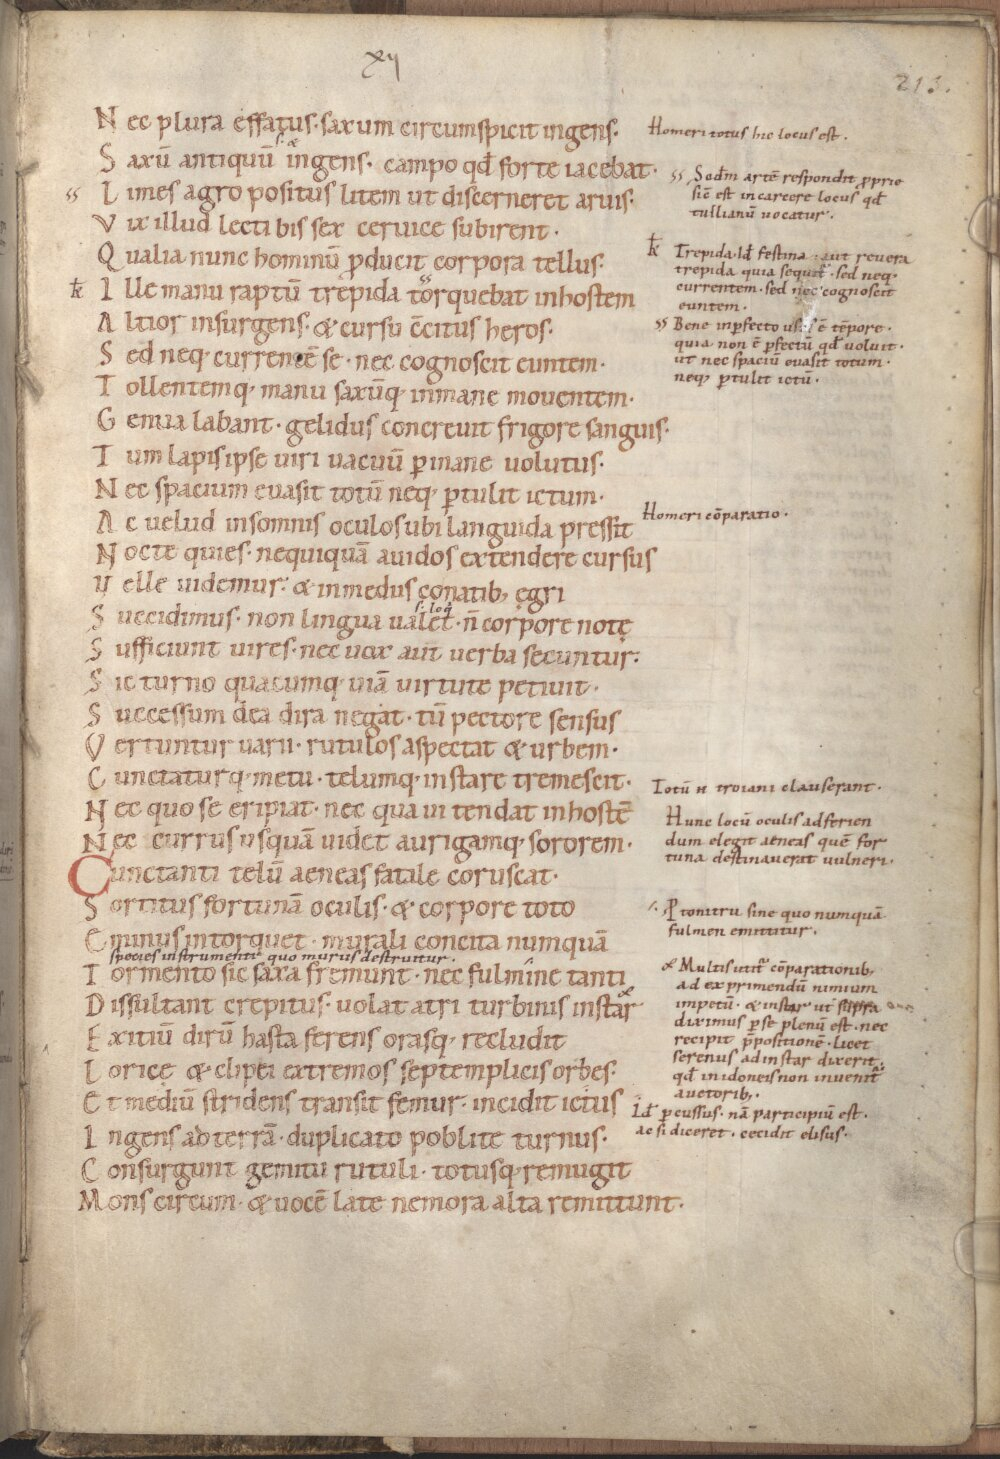 xij
213.
Nec plura effatus· saxum circumspicit ingens·
Saxū antiquū ingens· campo qđ forte iacebat·
Limes agro positus litem ut discerneret aruis·
Vix illud lecti bis sex ceruice subirent·
Qualia nunc hominū ꝓducit corpora tellus·
Ille manu raptū trepida torquebat inhostem
Altior insurgens· & cursu c̄citus heros·
Sed neq; currentē se· nec cognoscit euntem·
Tollentemq; manu saxūq; inmane mouentem·
Genua labant· gelidus concreuit frigore sanguis·
Tum lapis ipse uiri uacuū ꝑ inane uolutus·
Nec spacium euasit totū neq; ꝑtulit ictum·
Ac uelud insomnis oculos ubi languida pressit
Nocte quies· nequiquā auidos extendere cursus
Velle uidemur· & inmedus conatib; ęgri
Succidimus· non lingua ualet· n̄ corpore notę
Sufficiunt uires· nec uox aut uerba secuntur·
Sic turno quacumq; uiā uirtute petiuit·
Successum dea dira negat· tū pectore sensus
Vertuntur uarii· rutulos aspectat & urbem·
Cunctaturq; metu· telumq; instare tremescit·
Nec quo se eripiat· nec qua ui tendat inhostē
Nec currus usquā uidet aurigamq; sororem·
Cunctanti telū aeneas fatale coruscat·
Sortitus fortunā oculis· & corpore toto
Eminus intorquet· murali concita numquā
species instrumenti quo murus destruitur·
Tormento sic saxa fremunt· nec fulmine tanti
Dissultant crepitus· uolat atri turbinis instar
Exitiū dirū hasta ferens orasq; recludit
Loricę & clipei extremos septemplicis orbes·
Et mediū stridens transit femur· incidit ictus
Ingens ad terrā· duplicato poblite turnus·
Consurgunt gemitu rutuli· totusq; remugit
Mons circum· & uocē late nemora alta remittunt·
Homeri totus hic locus est·
Sed m̄ artē respondit ꝓprie
sic̄ est in carcere locus qđ
tullianū uocatur·
Trepida· Iđ festina· aut reuera
trepida quia sequit̄· sed neq;
currentem· sed nec cognoscit
euntem·
Bene inꝑfecto ē tēpore·
quia non ē ꝑfectū qđ uoluit·
ut nec spaciū euasit totum·
neq; ꝑtulit ictū·
Homeri cōparatio·
Totū n̄ troiani clauserant·
Hunc locū oculis ad ferien
dum elegit aeneas quē for
tuna destinauerat uulneri·
ꝑ tonitru sine quo numquā
fulmen emittitur·
Multis utit̄ cōparationib;
ad exprimendū nimium
impetū· & instar ut
diximus ꝑ se plenū est· nec
recipit p̄positionē· licet
serenus ad instar dixerit·
qđ in idoneis non inuenit̄
auctorib;·
Iđ ꝑcussus· nā participiū est·
ac si diceret· cecidit elisus·